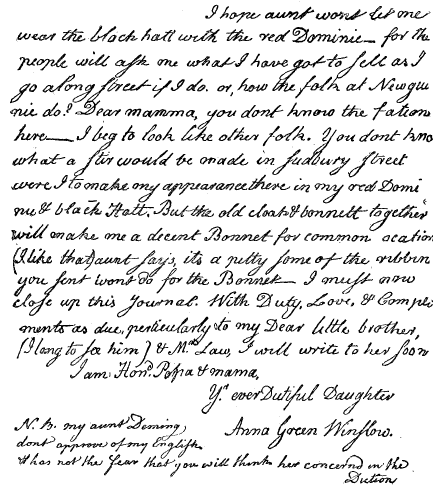 I hope aunt wont let me
wear the black hatt with the red Dominie — for the
people will ask me what I have got to sell as I
go along street if I do. or, how the folk at Newgui
nie do? Dear mamma, you dont know the fation
here — I beg to look like other folk. You dont kno
what a stir would be made in sudbury street
were I to make my appearance there in my red Domi
nie & black Hatt. But the old cloak & bonnett together
will make me a decent Bonnet for common ocation
(I like that) aunt says, its a pitty some of the ribbin
you sent wont do for the Bonnet — I must now
close up this Journal. With Duty, Love, & Comple
ments as due, perticularly to my Dear little brother,
(I long to see him) & Mrs Law, I will write to her soon
I am Hond Papa & mama,
Yr ever Dutiful Daughter
Anna Green Winslow.
N. B. my aunt Deming,
dont approve of my English.
& has not the fear that you will think her concernd in the
Diction